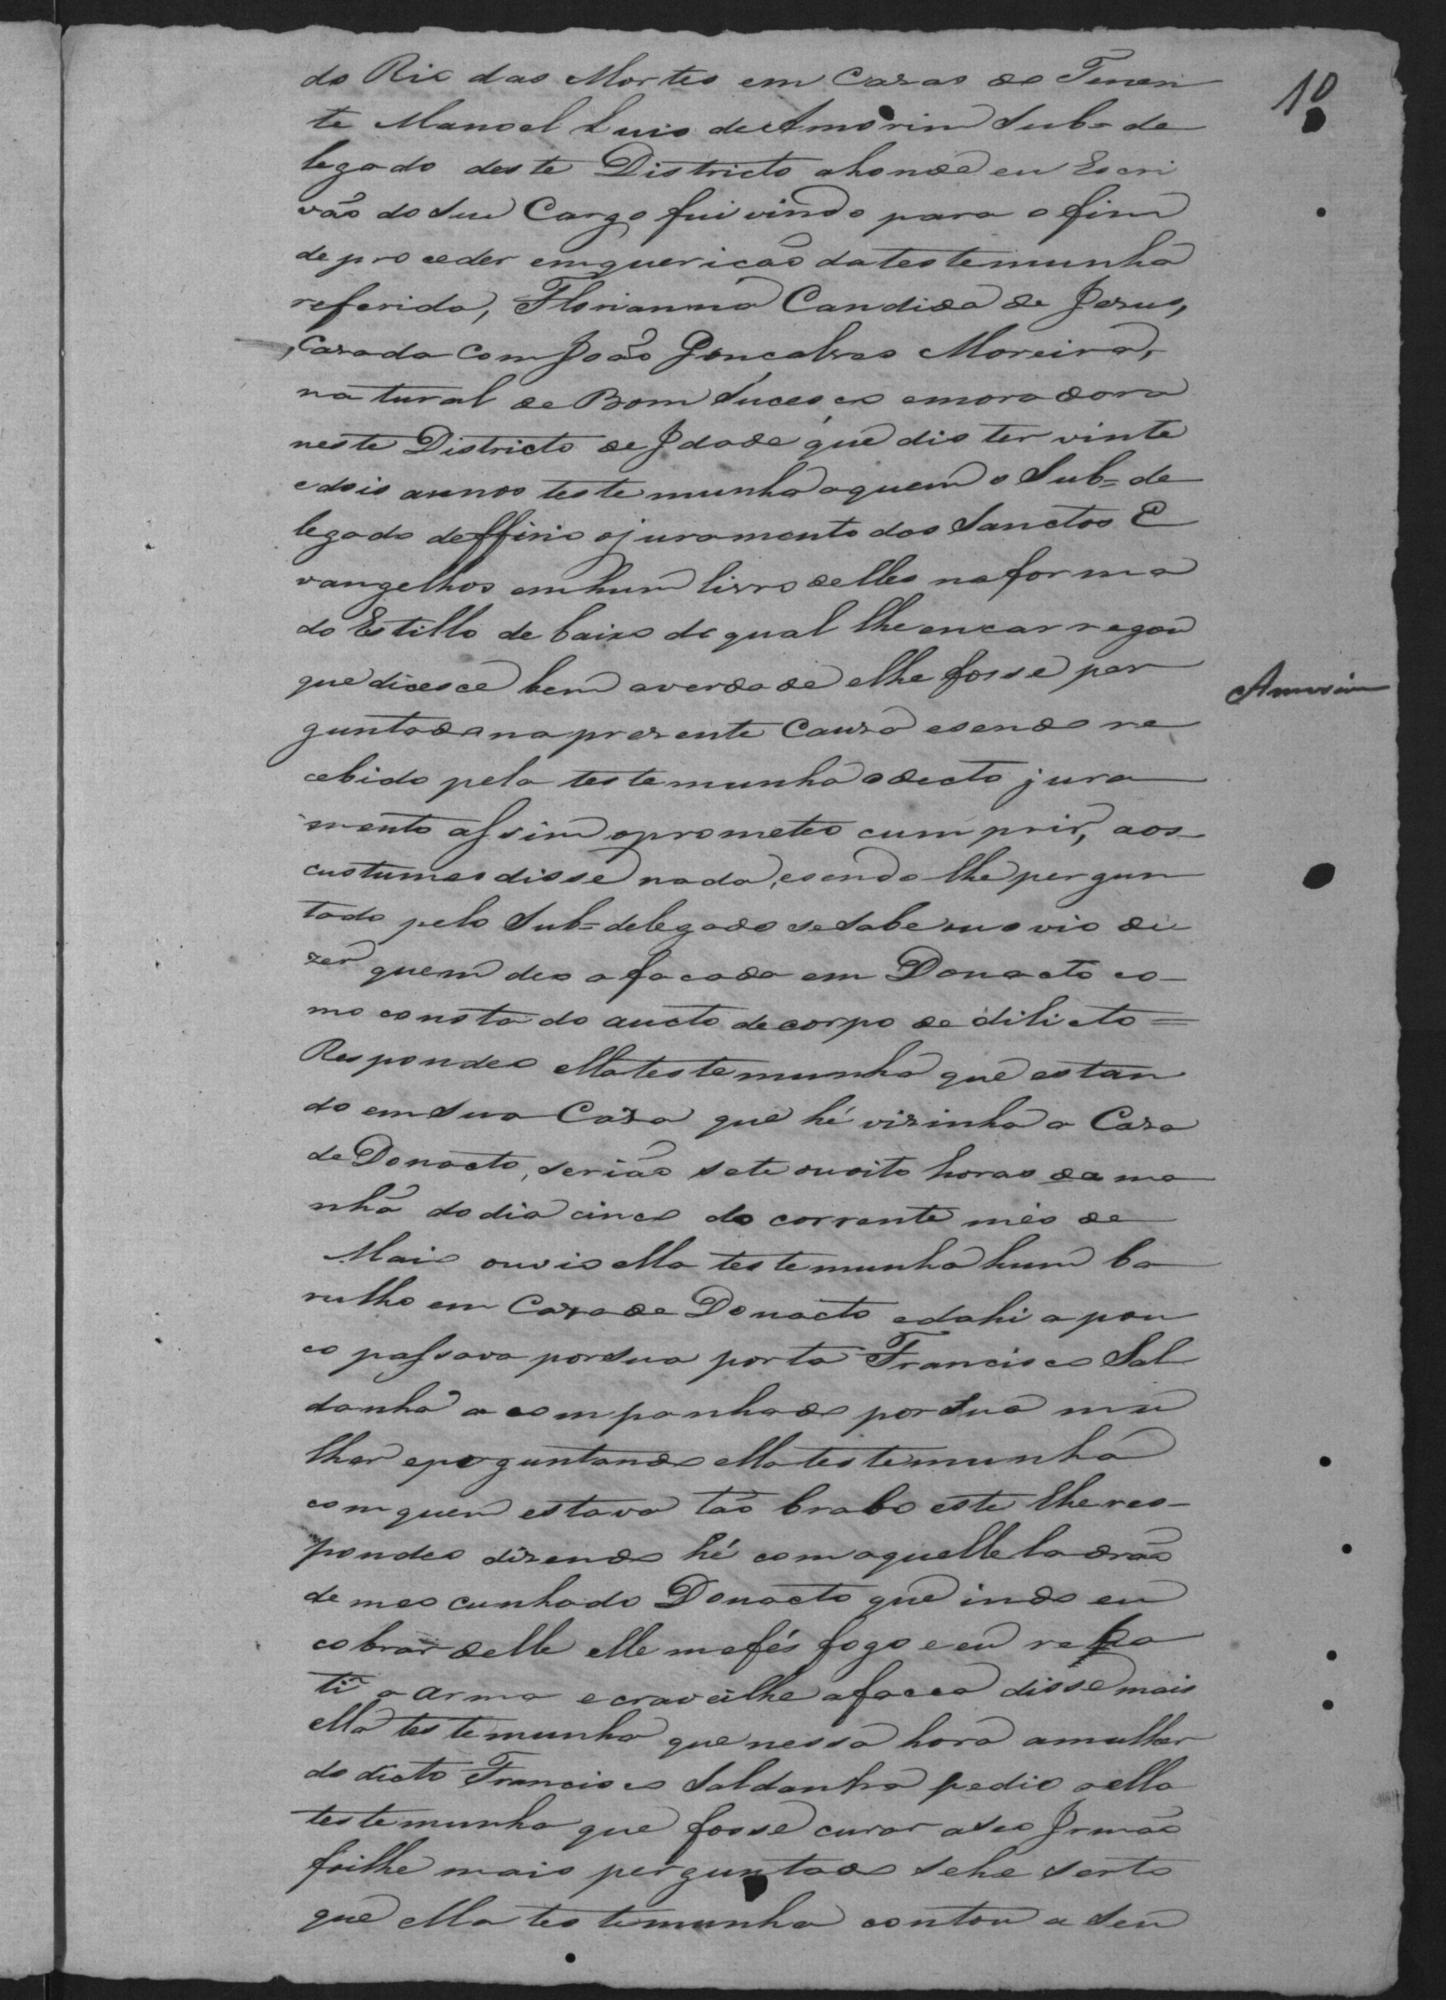 10
do Rio das Mortes em Cazas do Tenen
te Manoel Luis de Amorim Sub=de
legado deste Districto ahonde eu Escri
vão do Seu Cargo fui vindo para o fim
de proceder emquericão da testemunha
referida, Florianna Candida de Jezus,
Cazada com João Goncalves Moreira,
natural de Bom Sucesco emoradora
neste Districto de Jdade que dis ter vinte
edois annos testemunha aquem o Sub=de
legado deffirio ojuramento dos Sanctos E
vangelhos emhum livro delles na forma
do Estillo de baixo do qual lhe encarregou
que dicesce bem averdade elhe fosse per
guntada na prezente Cauza esendo re
cebido pela testemunha odicto jura
mento assim oprometeo cumprir, aos
custumes disse nada, esendo lhe pergun
tado pelo Sub=delegado se sabe ou ovio di
zer quem deo a facada em Donacto co
mo consta do aucto de corpo de dilicto=
Respondeo ella testemunha que estan
do em Sua Caza que hé vizinha a Caza
de Donacto, serião sete ou oito horas da ma
nhã do dia cinco do corrente mês de
Maio ouvio ella testemunha hum ba
rulho em Caza de Donacto edahi a pou
co passava por Sua porta Francisco Sal
danha acompanhado por Sua mu
lher eperguntando ella testemunha
com quem estava tão brabo este lhe res-
pondeo dizendo hé com aquelle ladrão
de meo cunhado Donacto que indo eu
cobrar delle elle me fés fogo e eu reba
ti a arma e craveilhe a facca disse mais
ella testemunha que nessa hora amulher
do dicto Francisco Saldanha pedio aella
testemunha que fosse curar aseo Jrmão
foilhe mais perguntado sehe serto
que ella testemunha contou a seu
Amorim